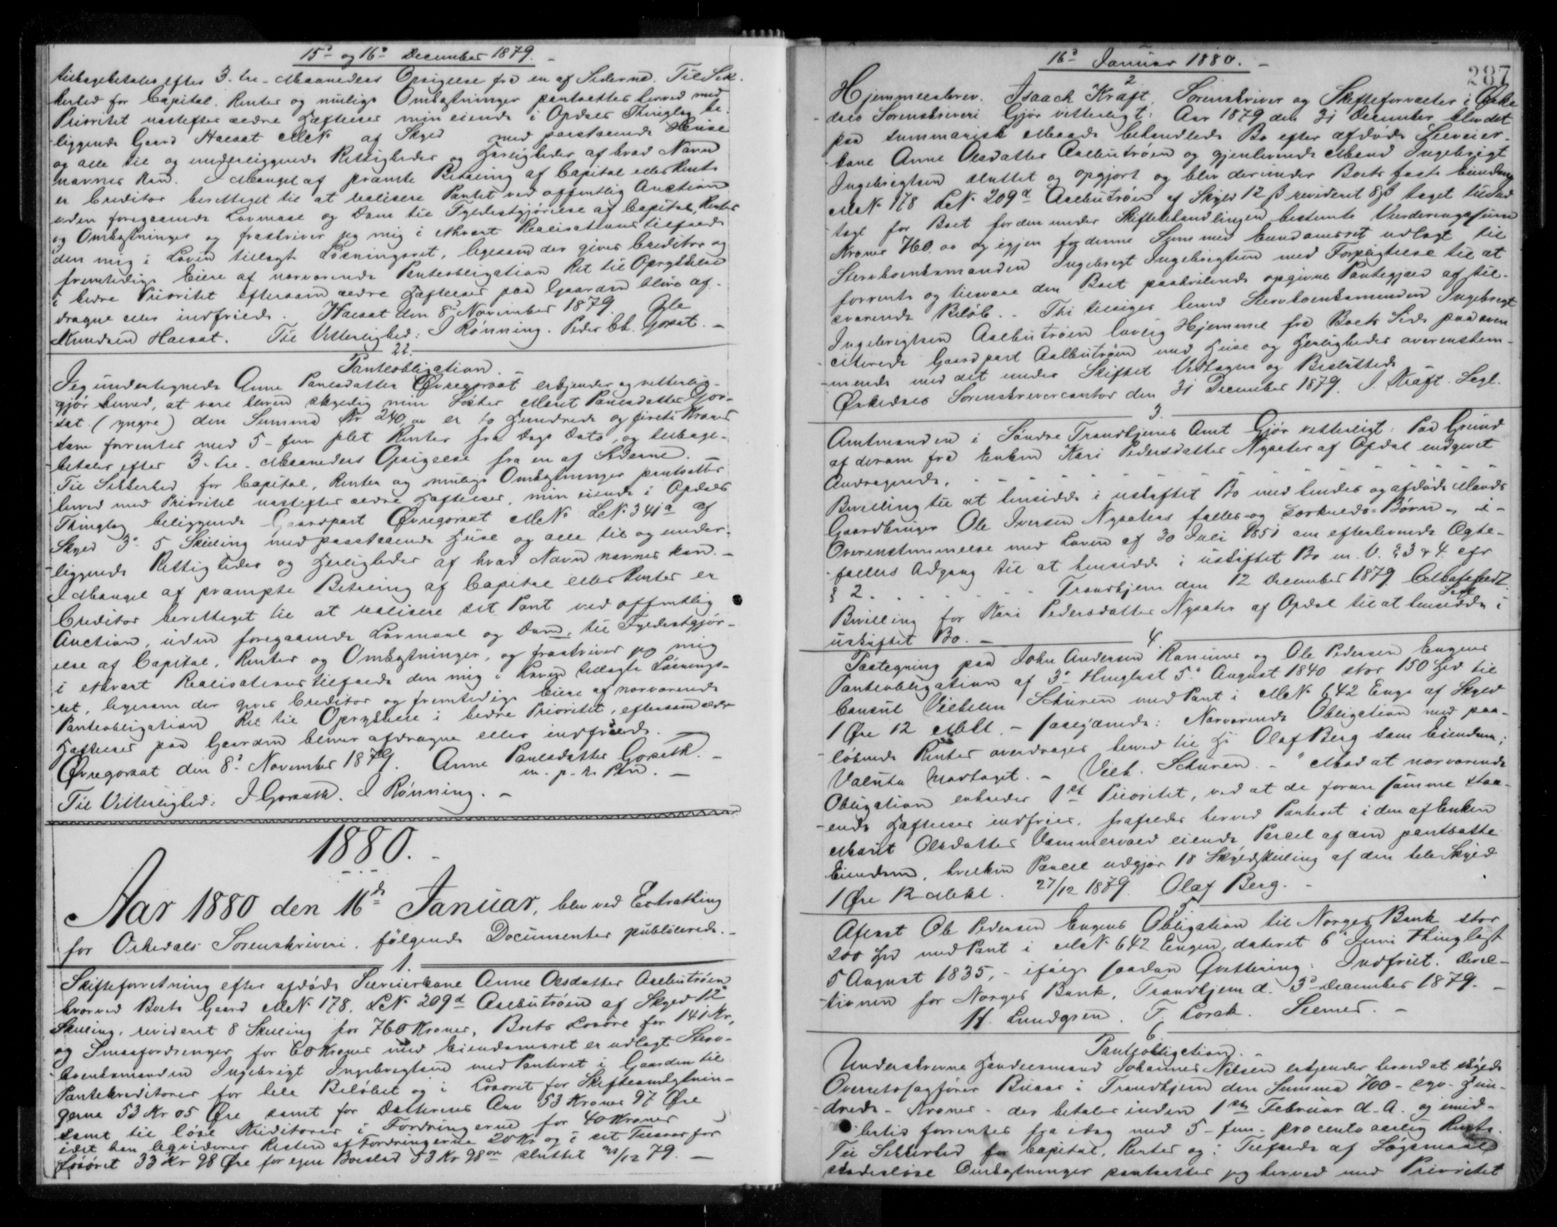 15de og 16de December 1879.
tilbagebetales efter 3-tre-Maaneders Opsigelse fra en af Siderne. Til Sik-
kerhed for Capital, Renter og mulige Omkostninger pantsættes herved med
Prioritet næstefter ældre Hæftelser min eiende i Opdals Thinglag be-
liggende Gaard Haesæt MNr af Skyld med paastaaende Huse
og alle til og underliggende Rettigheder og Herligheder af hvad Navn
nævnes kan. I Mangel af promte Betaling af Capital eller Renter
er Creditor berettiget til at realisere Pantet ved offentlig Auction
uden foregaaende Lovmaal og Dom til Fyldestgjørelse af Capital, Renter
og Omkostninger og fraskriver jeg mig i ethvert Realisationstilfælde
den mig i Loven tillagt Løsningsret, ligesom der gives Creditor og
fremtidige Eiere af nærværende Panteobligation Ret til Oprykkelse
i bedre Prioritet eftersom ældre Hæftelser paa Gaarden blive af-
dragne eller indfriede. Haesæt den 8de November 1879. Ole
Knudsen Haesæt. Til Vitterlighed: I Rønning. Peder Chr. Gorsæt.
22.
Panteobligation.
Jeg undertegnede Anne Paulsdatter Øvregorsæt erkjender og vitterlig-
gjør herved, at være bleven skyldig min Søster Marit Paulsdatter Gor-
sæt (yngre) den Summa Kr 240,00 er to Hundrede og firti Kroner
som forrentes med 5-fem pCt Renter fra Dags Dato, og tilbage-
betales efter 3-tre-Maaneders Opsigelse fra en af Siderne.
Til Sikkerhed for Capital, Renter og mulige Omkostninger pantsættes
herved med Prioritet næstefter ældre Hæftelser, min eiende i Opdals
Thinglag beliggende Gaardpart Øvregorsæt MNr LNr 341a af
Skyld 3 5 Skilling med paastaaende Huse og alle til og under-
liggende Rettigheder og Herligheder af hvad Navn nævnes kan.
I Mangel af prompte Betaling af Capital eller Renter er
Creditor berettiget til at realisere sit Pant ved offentlig
Auction, uden foregaaende Lovmaal og Dom, til Fyldestgjør-
else af Capital, Renter og Omkostninger, og fraskriver jeg mig
i ethvert Realisationstilfælde den mig i Loven tillagte Løsnings-
ret, ligesom der gives Creditor og fremtidige Eiere af nærværende
Panteobligation Ret til Oprykkelse i bedre Prioritet, eftersom ældre
Hæftelser paa Gaarden bliver afdragne eller indfriede.
Øvregorsæt den 8de November 1879. Anne Paulsdatter Gorsæth.
m. p. h. Pen.
Til Vitterlighed: J Gorsæth. I Rønning.
1880.
Aar 1880 den 16de Januar, blev ved Extratting
for Orkedals Sorenskriveri følgende Documenter publicerede.
1.
Skifteforretning efter afdøde Selveierkone Anne Olsdatter Aalbutrøen
hvorved Boets Gaard MNr 178. LNr 209d Aalbutrøen af Skyld 12
Skilling, revideret 8 Skilling for 760 Kroner, Boets Løsøre for 141 Kr,
og Smaafordringer for 60 Kroner med Eiendomsret er udlagt Sterv-
boenkemanden Ingebrigt Ingebrigtsen med Panteret i Gaarden til
Pantekreditorer for hele Beløbet og i Løsøret for Skifteomkostnin-
gerne 53 Kr 05 Øre samt for Datterens Arv 53 Kroner 97 Øre
samt til løse Kreditorer i Fordringerne for 40 Kroner
idet han liqviderer Resten af Fordringerne 20 Kr og i sit Tilsvar for
Løsøret 33 Kr 98 Øre for egen Boeslod 53 Kr 98 Øre sluttet 31/12 79.
16de Januar 1880.
287
2
Hjemmelsbrev. Isaach Kraft, Sorenskriver og Skifteforvalter i Orke
dals Sorenskriveri Gjør vitterligt: Aar 1879 den 31 December blev det
paa summarisk Maade behandlede Bo efter afdøde Selveier-
kone Anne Olsdatter Aalbutrøen og gjenlevende Mand Ingebrigt
Ingebrigtsen sluttet og opgjort og blev derunder Boets faste Eiendom
MNr 178 LNr 209d Aalbutrøen af Skyld 12 β revideret 8 β taget til Ind-
tægt for Boet for den under Skiftebehandlingen bestemte Vurderingssum
Kroner 760,00 og igjen for denne Sum med Eiendomsret udlagt til
Stervboenkemanden Ingebrigt Ingebrigtsen med Forpligtelse til at
forrente og tilsvare den Boet paahvilende opgivne Pantegjæld af til-
svarende Beløb. Thi tillægges herved Stervboenkemanden Ingebrigt
Ingebrigtsen Aalbutrøen lovlig Hjemmel fra Boets Side paa oven
citerede Gaardpart Aalbutrøen med Huse og Herligheder overenstem-
mende med det under Skiftet Vedtagne og Besluttede
Orkedals Sorenskrivercontor den 31 December 1879. I. Kraft. Segl.
3.
Amtmanden i Søndre Trondhjems Amt Gjør vitterligt: Paa Grund
af derom fra Enken Kari Pedersdatter Nysæter af Opdal indgivet
Andragende,
Bevilling til at hensidde i uskiftet Bo med hendes og afdøde Mands
Gaardbruger Ole Iversen Nysæters fælles- og Særkulds-Børn, -i-
Overensstemmelse med Loven af 30 Juli 1851 om efterlevende Ægte-
fælles Adgang til at hensidde i uskiftet Bo m. V. § 3 & 4 cfr
§ 2. Trondhjem den 12 December 1879
Bevilling for Kari Pedersdatter Nysæter af Opdal til at hensidde i
uskiftet Bo.
4.
Paategning paa John Andersen Rammes og Ole Pedersen Engens
Panteobligation af 3de thinglæst 5de August 1840 stor 150 Spd til
Consul Vilhelm Schuren med Pant i MNr 642 Enge af Skyld
1 Øre 12 Mkl. - saalydende: Nærværende Obligation med paa-
løbende Renter overdrages herved til Hr Olaf Berg som Eiendom;
Valuta Modtaget. - Vilh. Schuren. - "Mod at nærværende
Obligation erholder 1ste Prioritet, ved at de foran samme staa-
ende Hæftelser indfries, frafaldes herved Panteret i den af Enken
Marit Olsdatter Vammervold eiende Parcel af den pantsatte
Eiendom, hvilken Parcel udgjør 18 Skyldskilling af den hele Skyld
1 Øre 12 Mkl. 27/12 1879 Olaf Berg.
5
Aflæst Ole Pedersen Engens Obligation til Norges Bank stor
200 Spd med Pant i MNr 642 Engen, dateret 6 Juni thinglæst
5 August 1835, - ifølge saadan Qvittering: Indfriet. Direc-
tionen for Norges Bank, Trondhjem d. 3de December 1879.
H. Lundgreen. F. Lorck. Selmer.
6.
Pantobligation.
Underskrevne Handelsmand Johannes Nilsen erkjender herved at skylde
Overretssagfører Buaas i Trondhjem den Summa 700 - syv Hun-
drede - Kroner - der betales inden 1ste Februar d. A. og imid-
lertid forrentes fra idag med 5-fem- procento aarlig Rente.
Til Sikkerhed for Capital, Renter og i Tilfælde af Søgsmaal
skadesløse Omkostninger pantsætter jeg herved med Prioritet